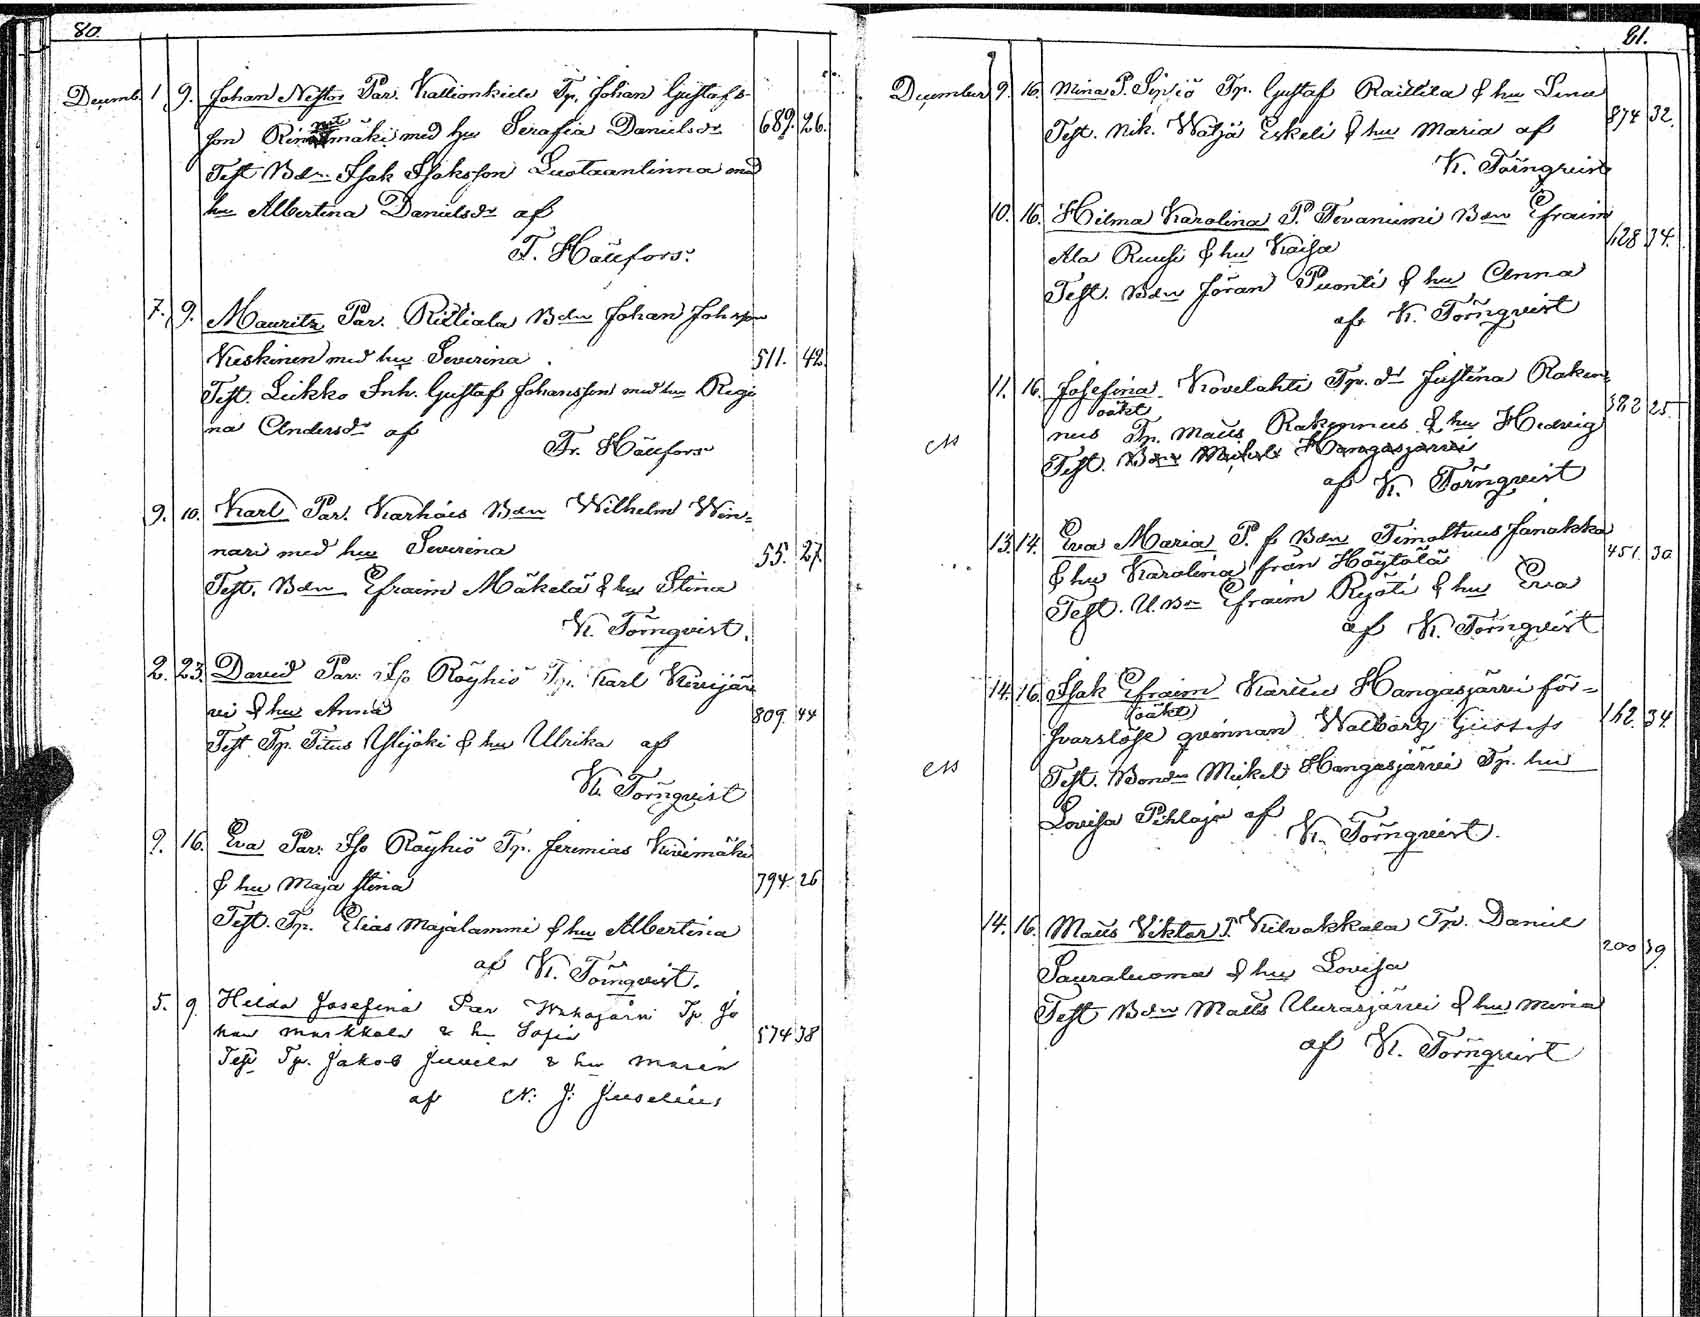 80.
Decemb. 1. 9. Johan Nestor Par. Kallionkieli Tp. Johan Gustafs-
son mäki med hu Serafia Danielsdr 689. 26.
Test Bdn Isak Isaksson Luotaanlinna med
hu Albertina Danielsdr af
F. Hällfors.
7. 9. Mauritz Par. Riitiala Bdn Johan Johsson
Keskinen med hu Severina 511. 42.
Test. Leikko Inh. Gustaf Johansson med hu Regi
na Andersdr af Fr. Hällfors
9. 10. Karl Par. Karhois Bdn Wilhelm Win=
nari med hu Severina 55. 27.
Test. Bdn Efraim Mäkelä & hu Stina
K. Törnqvist.
2. 23. David Par. Iso Röyhiö Tp. Karl Kivijär
vi & hu Anna 809 44
Test Tp. Titus Ylijoki & hu Ulrika af
K. Törnqvist
9. 16. Eva Par. Iso Röyhiö Tp. Jeremias Kivimäki
& hu Maja Stina 794 26
Test. Tp. Elias Majalammi & hu Albertina
af K. Törnqvist.
5. 9. Hilda Josefina Par Tp Jo
han Markkola & hu Sofia 574 38
Test Tp. Jakob Juvela & hu Maria
af N. J. Juselius
81.
December 9. 16. Mina P. Sipiö Tp. Gustaf Raittila & hu Lena 874 32.
Test. Nik. Wäljä Eskeli & hu Maria af
K. Törnqvist
10. 16. Hilma Karolina P. Tevaniemi Bdn Efraim
Ala Ruusi & hu Kaisa 128 34.
Test. Bdn Jöran Puonti & hu Anna
af K. Törnqvist
11. 16. Josefina Kovelahti Tp. dr Justina Raken=
oäkt
nus Tp. Matts Rakennus & hu Hedvig 382 25.
Test. Bdn Mikel Hangasjärvi
af K. Törnqvist
13. 14. Eva Maria P. f Bdn Timolteus Janakka 451. 30
& hu Karolina från Höytölä
Test. U. Bn Efraim Rijoti & hu Eva
af K. Törnqvist
14. 16. Isak Efraim Hangasjärvi för=
(oäkt)
svarslöse qvinnan Walborg Gustafs 142. 34.
Test. Bondn Mikel Hangasjärvi Tp. hu
Lovisa Pihlaja af
K. Törnqvist.
14. 16. Matts Viktor P. Kilvakkala Tp. Daniel
Sauraluoma & hu Lovisa 200 39.
Test Bdn Matts Uurasjärvi & hu Mina
af K. Törnqvist